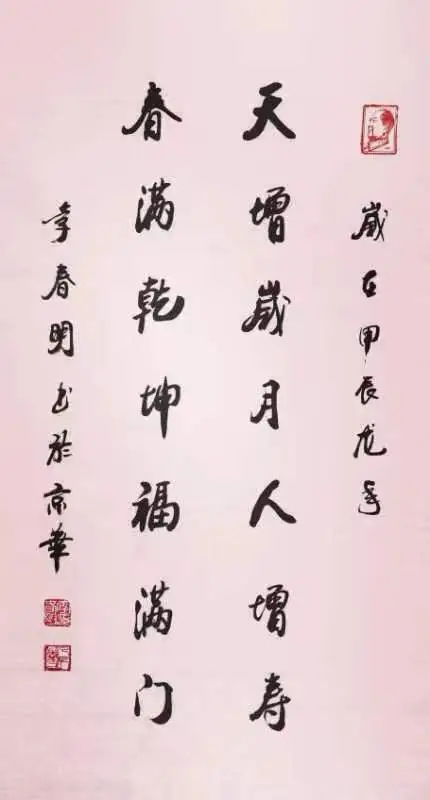 歲在甲辰龙年
天增歲月人增寿
春满乾坤福满门
李春明书於京華